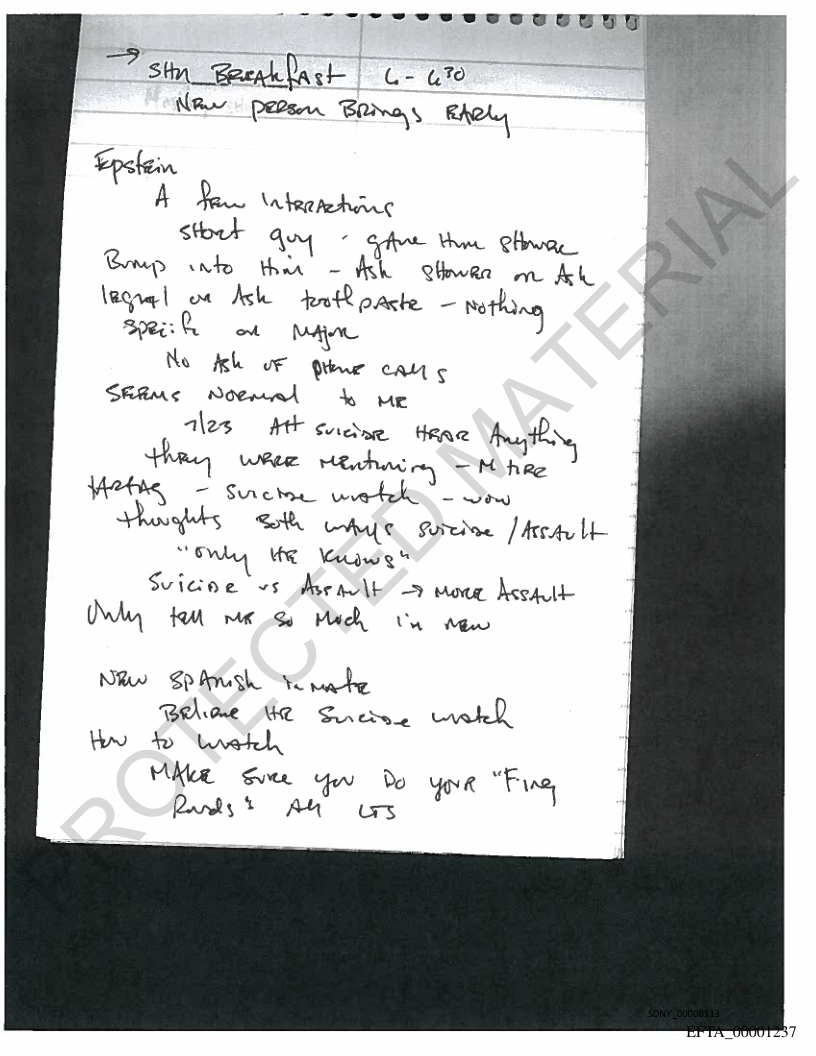 → SHU BREAKFAST 6-630
NEW PERSON BRINGS EARLY
Epstein
A few INTERACTIONS
SHORT guy - gAVE HIM SHOWER
Bump into Him - Ask SHOWER or Ask
legal or Ask toothpaste - Nothing
specific or MAJOR
No Ask of PHONE CALLS
SEEMS NORMAL to ME
7/23 Att SUICIDE HEAR Anything
they WERE MENTIONING -
- SUICIDE WATCH - WOW
thoughts Both WAYS SUICIDE / ASSAULT
"only HE KNOWS"
SUICIDE vs ASSAULT → MORE ASSAULT
Only tell ME so Much i'm NEW
NEW SPANISH INMATE
BELIEVE HE SUICIDE WATCH
How to WATCH
MAKE SURE you Do YOUR "Fing
Rounds" All LTS
PROTECTED MATERIAL
SDNY_00008113
EFTA_00001237